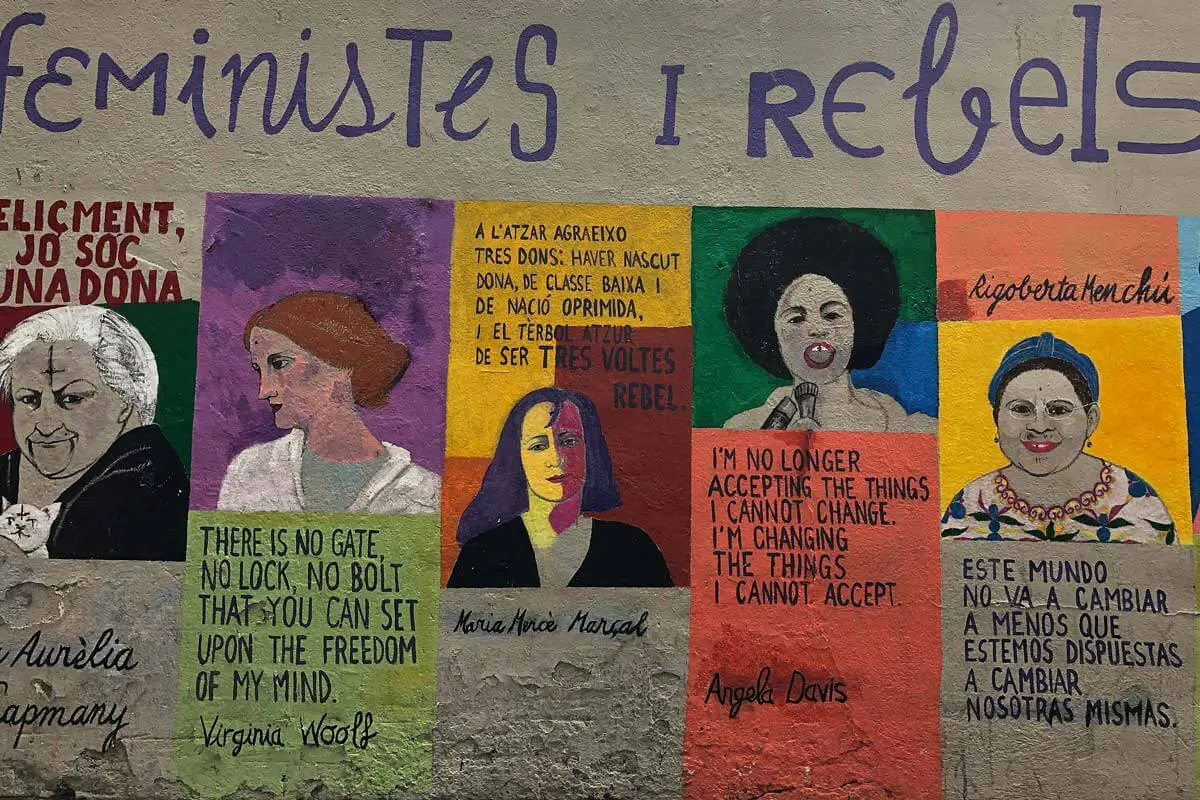 feministes i Rebels
ELIÇMENT,
JO SÓC
UNA DONA
Aurèlia
apmany
THERE IS NO GATE,
NO LOCK, NO BOLT
THAT YOU CAN SET
UPON THE FREEDOM
OF MY MIND.
Virginia Woolf
A L'ATZAR AGRAEIXO
TRES DONS: HAVER NASCUT
DONA, DE CLASSE BAIXA I
DE NACIÓ OPRIMIDA,
I EL TÈRBOL ATZUR
DE SER TRES VOLTES
REBEL.
Maria Mercè Marçal
I'M NO LONGER
ACCEPTING THE THINGS
I CANNOT CHANGE.
I'M CHANGING
THE THINGS
I CANNOT ACCEPT.
Angela Davis
Rigoberta Menchú
ESTE MUNDO
NO VA A CAMBIAR
A MENOS QUE
ESTEMOS DISPUESTAS
A CAMBIAR
NOSOTRAS MISMAS.